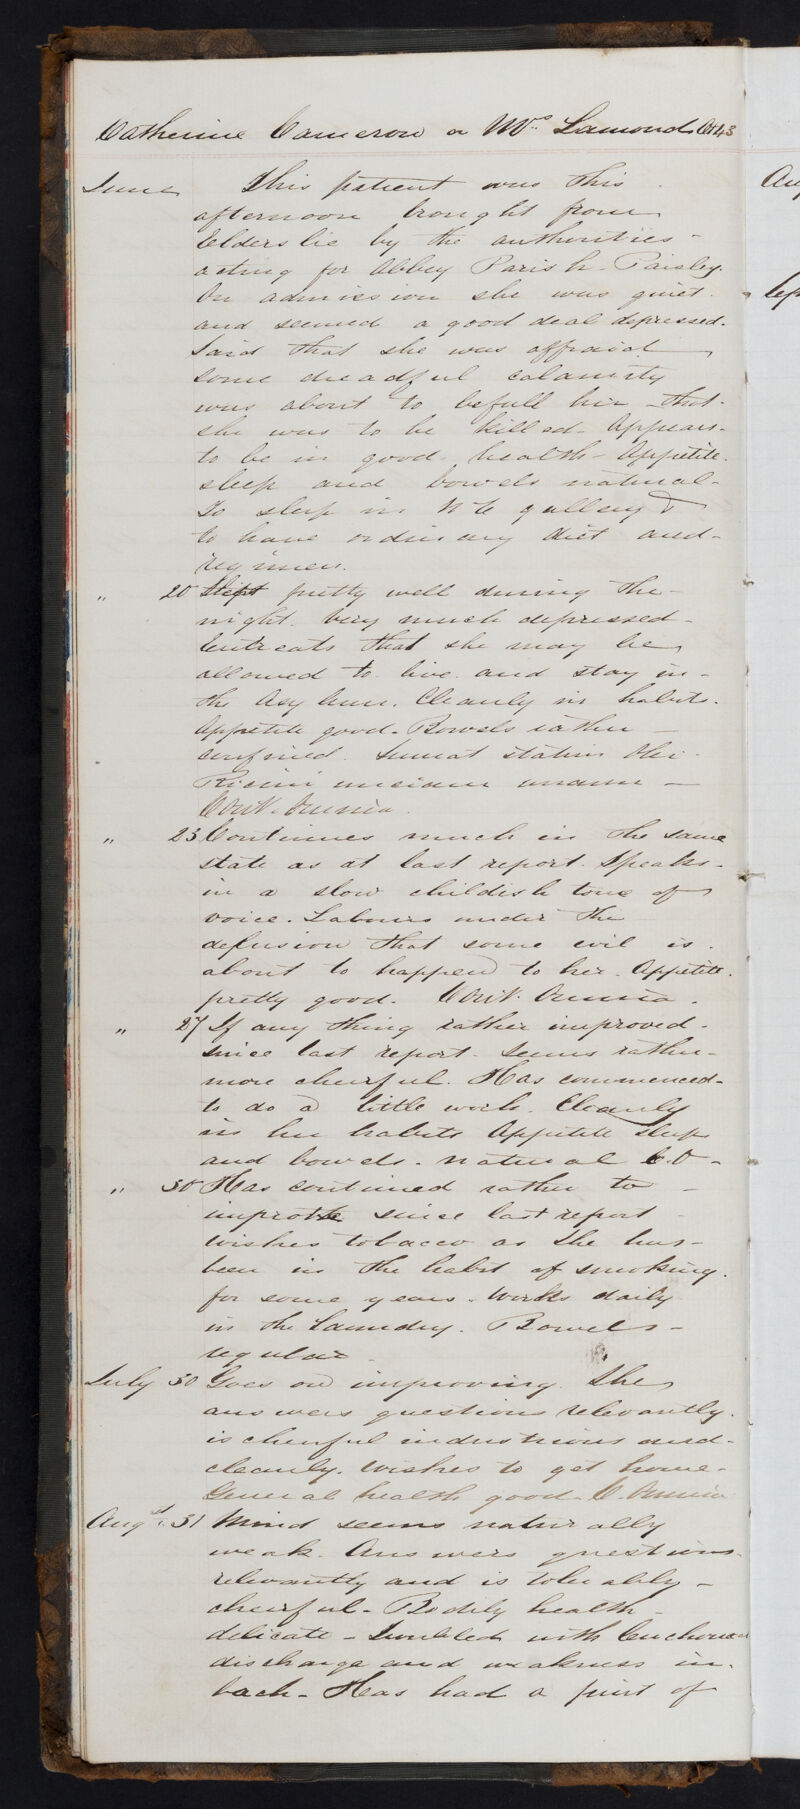 Catherine Cameron or Mrs. Lamond Æt 43
June This patient was this
afternoon brought from
Elderslie by the authorities
acting for Abbey Parish Paisley.
On admission she was quiet
and seemed a good deal depressed.
Said that she was affraid
some dreadful calamity
was about to befall her - that
she was to be killed. Appears
to be in good health - Appetite
sleep and bowels natural -
To sleep in gallery &
to have ordinary diet and
regimen.
" 20 Slept pretty well during the
night. Very much depressed -
Entreats that she may be
allowed to live and stay in
the Asylum. Cleanly in habits.
Appetite good. Bowels rather
confined. Sumat statim Olei
Ricini unciam unam -
Cont. Omnia.
" 23 Continues much in the same
state as at last report. Speaks
in a slow childish tone of
voice. Labours under the
delusion that some evil is
about to happen to her. Appetite
pretty good. Cont. Omnia.
" 27 If any thing rather improved
since last report. Seems rather
more cheerful. Has commenced
to do a little work. Cleanly
in her habits Appetite sleep
and bowels natural C.O -
" 30 Has continued rather to
improve since last report
wishes tobacco as she has
been in the habit of smoking
for some years. Works daily
in the Laundry. Bowels -
regular
July 30 Goes on improving. She
answers questions relevantly.
is cheerful industrious and
cleanly. Wishes to get home -
General health good - C. Omnia
Augst. 31 Mind seems naturally
weak. Answers questions
relevantly and is tolerably -
cheerful - Bodily health
delicate - Troubled with
discharge and weakness in
back - Has had a pint of
Aug
Sep